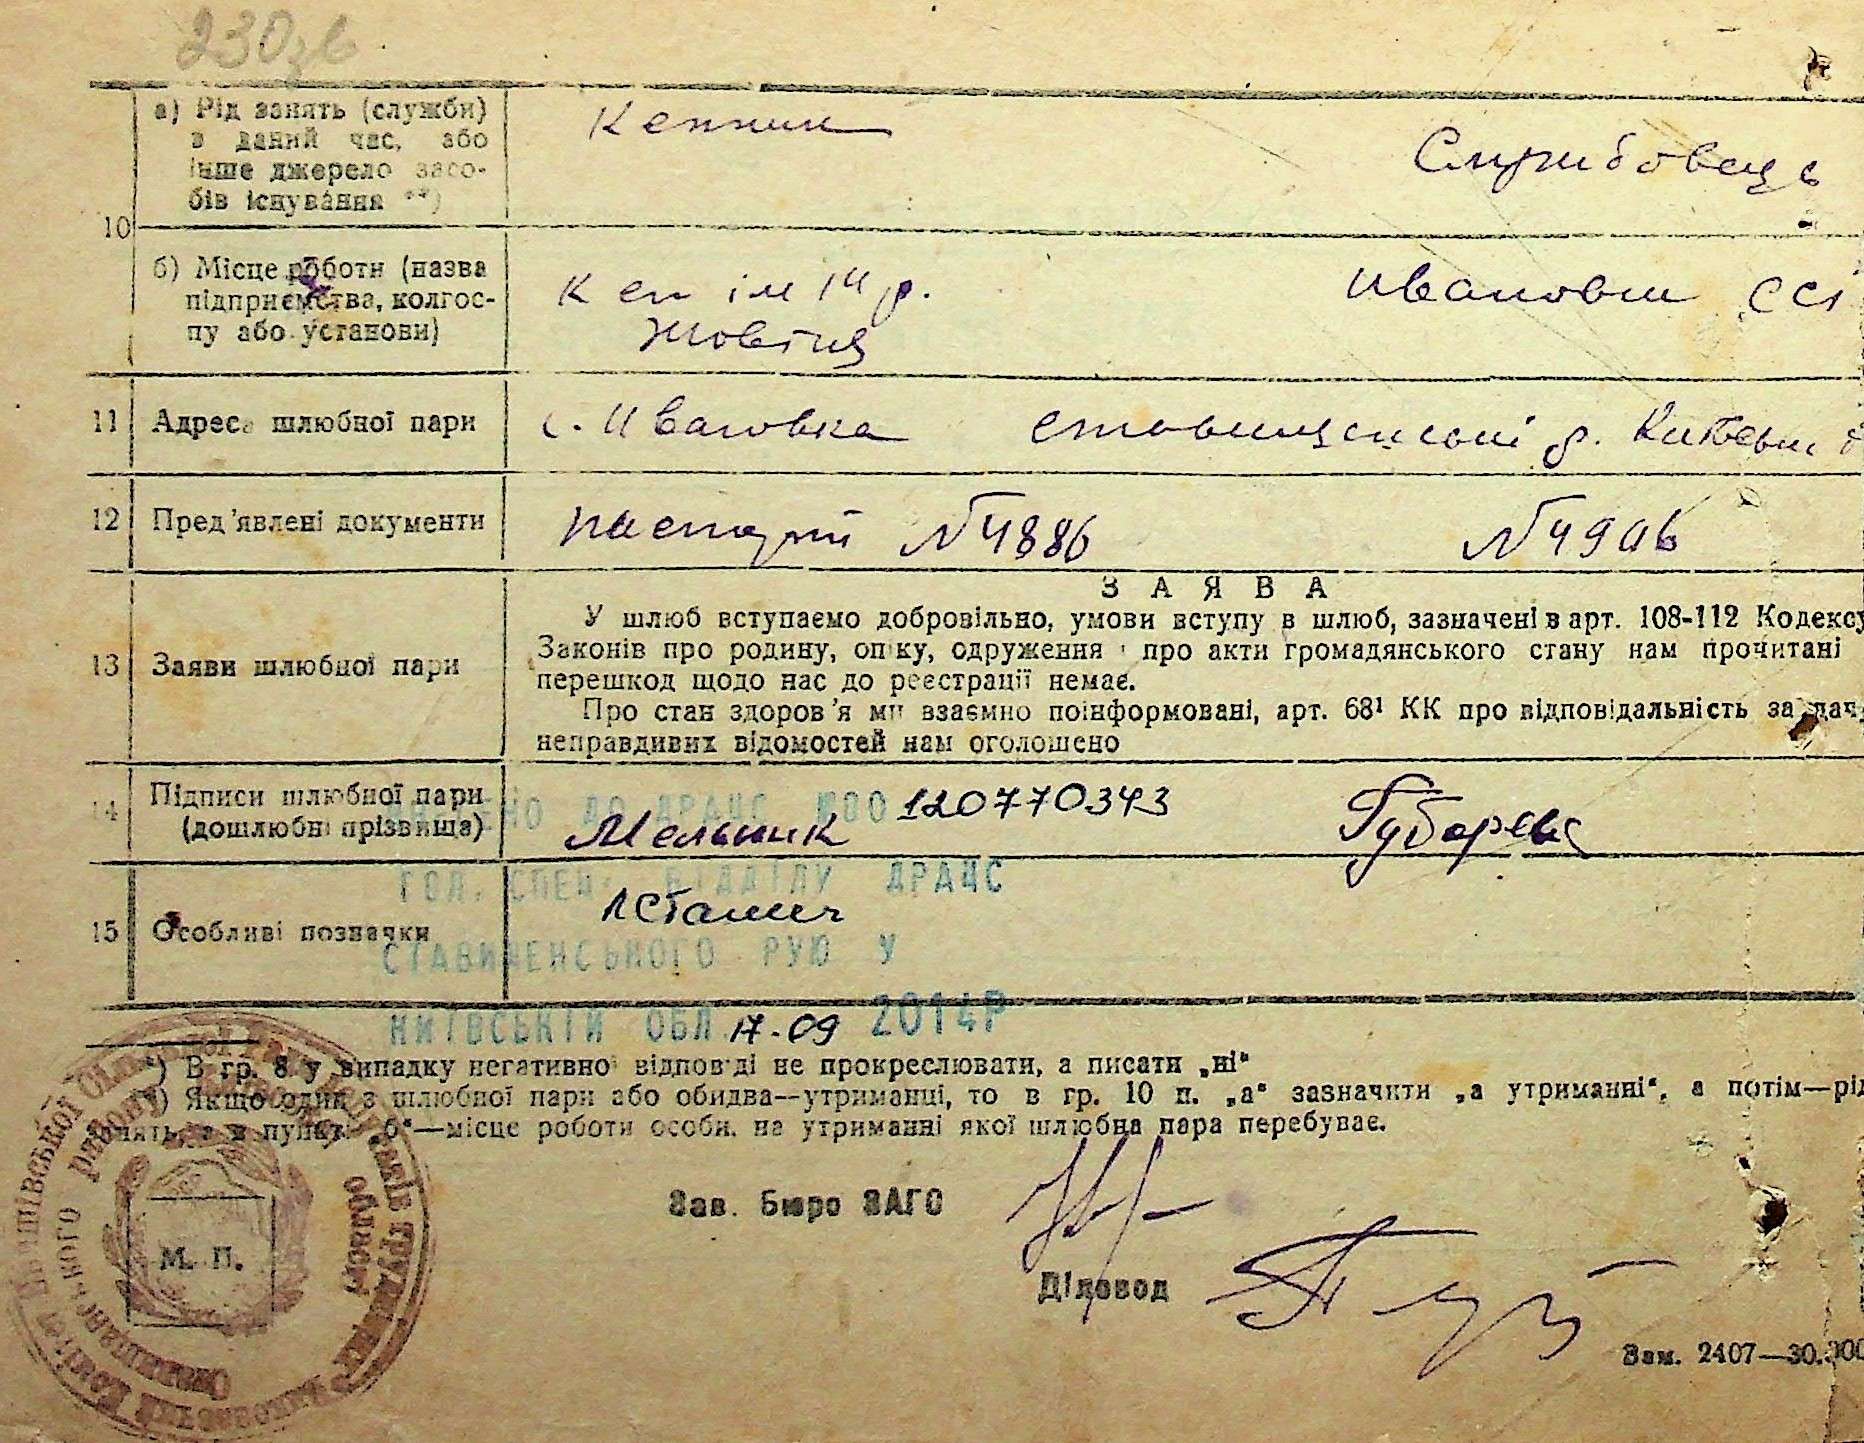 230зв
а) Рід занять (служби)
в даний час, або
інше джерело засо-
бів існування **)
Службовець
10
б) Місце роботи (назва
підприємства, колгос-
пу або установи)
ім 14 р.
Жовтня
Ивановш ССІ
11 Адреса шлюбної пари с. Ивановка р.
12 Пред'явлені документи паспорт №4886
13 Заяви шлюбної пари
ЗАЯВА
У шлюб вступаємо добровільно, умови вступу в шлюб, зазначені в арт. 108-112 Кодексу
Законів про родину, опіку, одруження і про акти громадянського стану нам прочитані
перешкод щодо нас до реєстрації немає.
Про стан здоров'я ми взаємно поінформовані, арт. 68¹ КК про відповідальність за дач
неправдивих відомостей нам оголошено
14 Підписи шлюбної пари
(дошлюбні прізвища)
ДО ДРАЦС №00120770343
Мельник Губарева
ГОЛ. СПЕЦ. ВІДДІЛУ ДРАЦС
15 Особливі позначки
СТАВИЩЕНСЬКОГО РУЮ У
КИЇВСЬКІЙ ОБЛ. 17-09 2014Р
*) В гр. 8 у випадку негативної відповіді не прокреслювати, а писати „ні“
**) Якщо один з шлюбної пари або обидва—утриманці, то в гр. 10 п. „а“ зазначити „а утриманні“, а потім—рід
занять, а в пункті „б“—місце роботи особи, на утриманні якої шлюбна пара перебуває.
Зав. Бюро ЗАГС
М. П.
Діловод
Зам. 2407—30.000